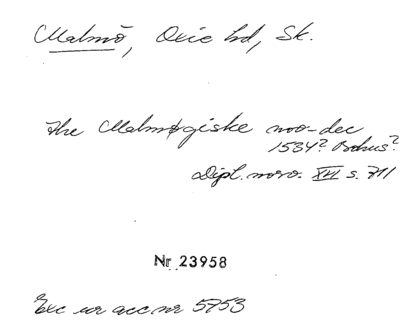 Malmö, Oxie hd, Sk.
the Malmøgiske nov-dec
1534? Bohus?
Dipl. norv. XVI s. 711
Nr 23958
Exc ur acc nr 5753